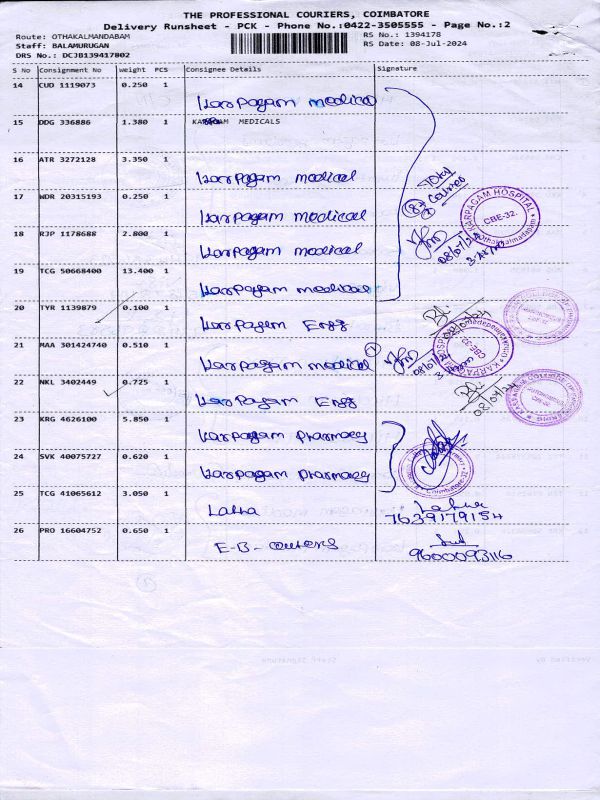 THE PROFESSIONAL COURIERS, COIMBATORE
Delivery Runsheet - PCK - Phone No.:0422-3505555 - Page No.:2
Route: OTHAKALMANDABAM RS No.: 1394178
Staff: BALAMURUGAN RS Date: 08-Jul-2024
DRS No.: DCJB139417802
S No Consignment No Weight PCS Consignee Details Signature
14 CUD 1119073 0.250 1
Karpagam medical
15 DDG 336886 1.380 1 MEDICALS
16 ATR 3272128 3.350 1
Karpagam medical
17 WDR 20315193 0.250 1
Karpagam medical
18 RJP 1178688 2.800 1
Karpagam medical
19 TCG 50668400 13.400 1
Karpagam medical
20 TYR 1139879 0.100 1
Karpagam Engg
21 MAA 301424740 0.510 1
Karpagam medical
22 NKL 3402449 0.725 1
Karpagam Engg
23 KRG 4626100 5.850 1
Karpagam pharmacy
24 SVK 40075727 0.620 1
Karpagam pharmacy
25 TCG 41065612 3.050 1
Latha
7639179154
26 PRO 16604752 0.650 1
E-B-
9600093116
KARPAGAM HOSPITAL
CBE-32.
08/07/24
08/07/24